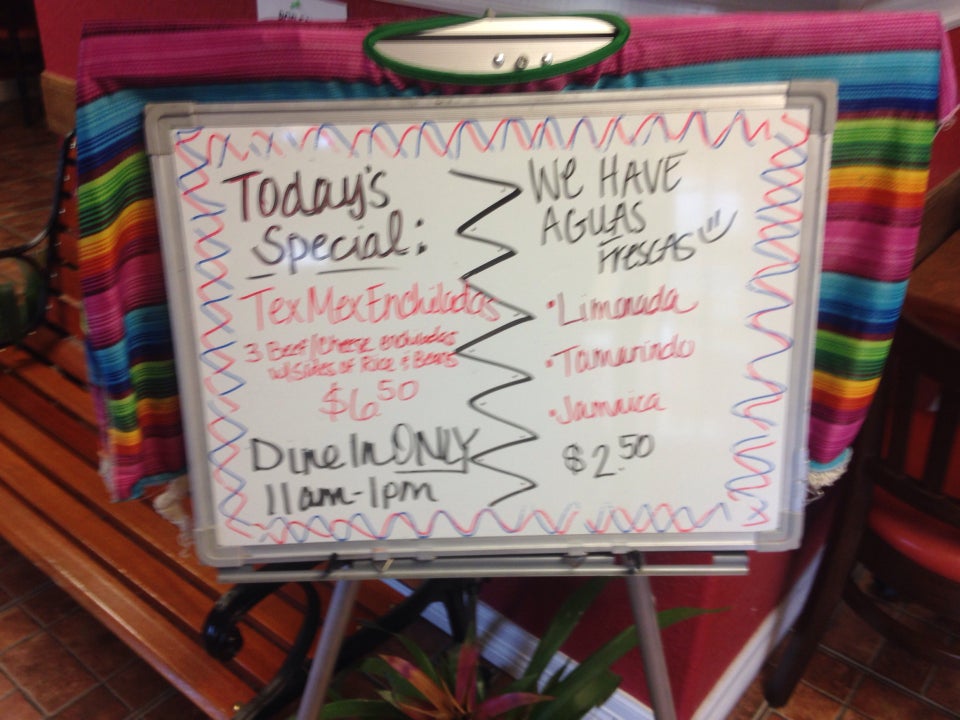 Today's
Special:
Tex Mex Enchiladas
3 Beef/Cheese enchiladas
w/Sides of Rice & Beans
$6.50
Dine In ONLY
11am-1pm
We HAVE
AGUAS
FrescAS
•Limonada
•Tamarindo
•Jamaica
$2.50